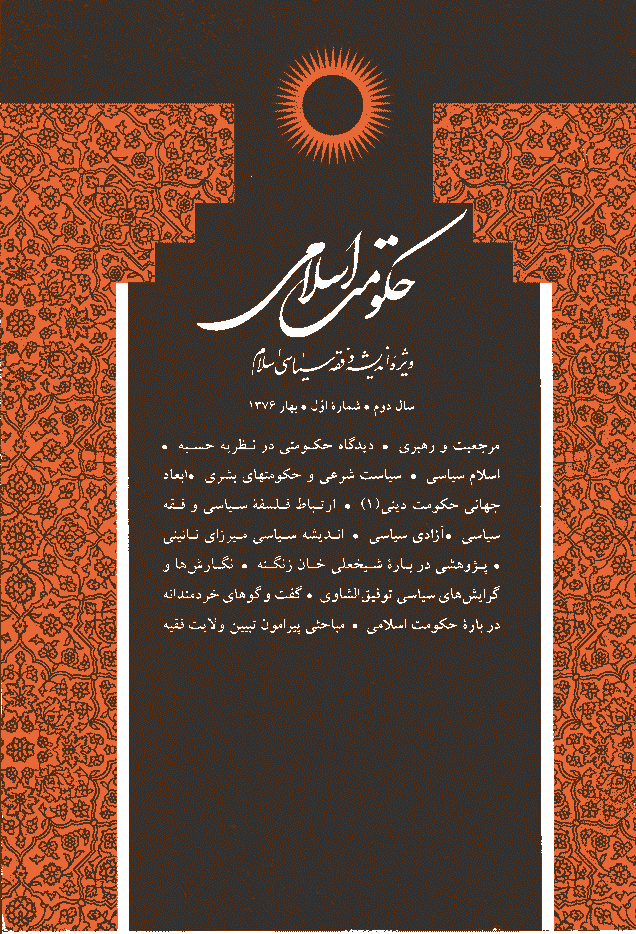 حکومت اسلامی
ویژهٔ اندیشه و فقه سیاسی اسلام
سال دوم • شمارهٔ اوّل • بهار ۱۳۷۶
مرجعیت و رهبری • دیدگاه حکومتی در نظریه حسبه •
اسلام سیاسی • سیاست شرعی و حکومتهای بشری •ابعاد
جهانی حکومت دینی(۱) • ارتباط فلسفهٔ سیاسی و فقه
سیاسی •آزادی سیاسی • اندیشه سیاسی میرزای نائینی
• پژوهشی در بارهٔ شیخعلی خان زنگنه • نگارش‌ها و
گرایش‌های سیاسی توفیق‌الشاوی • گفت و گوهای خردمندانه
در بارهٔ حکومت اسلامی • مباحثی پیرامون تبیین ولایت فقیه